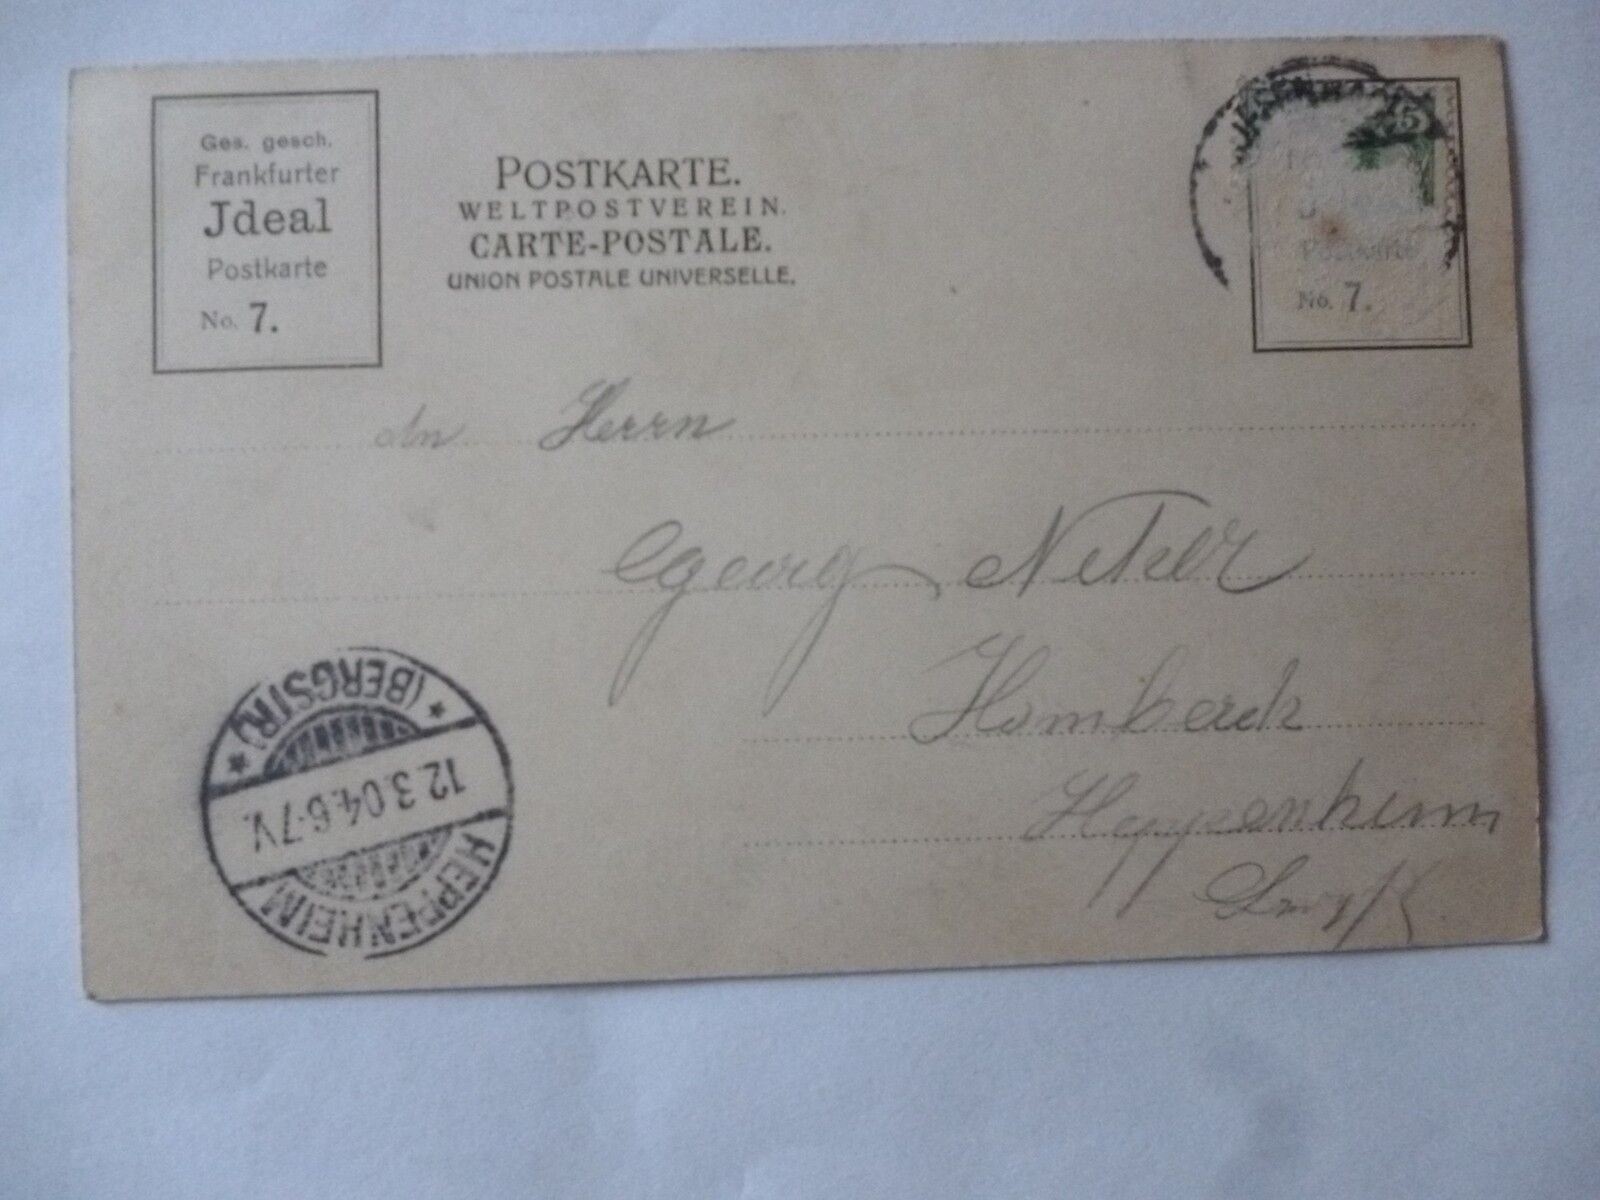 Ges. gesch.
Frankfurter
Jdeal
Postkarte
No. 7.
POSTKARTE.
WELTPOSTVEREIN.
CARTE-POSTALE.
UNION POSTALE UNIVERSELLE.
5
Postkarte
No. 7.
An Herrn
Georg
Hombach
Heppenheim
HEPPENHEIM
12.3.04.6-7V.
* (BERGSTR.) *